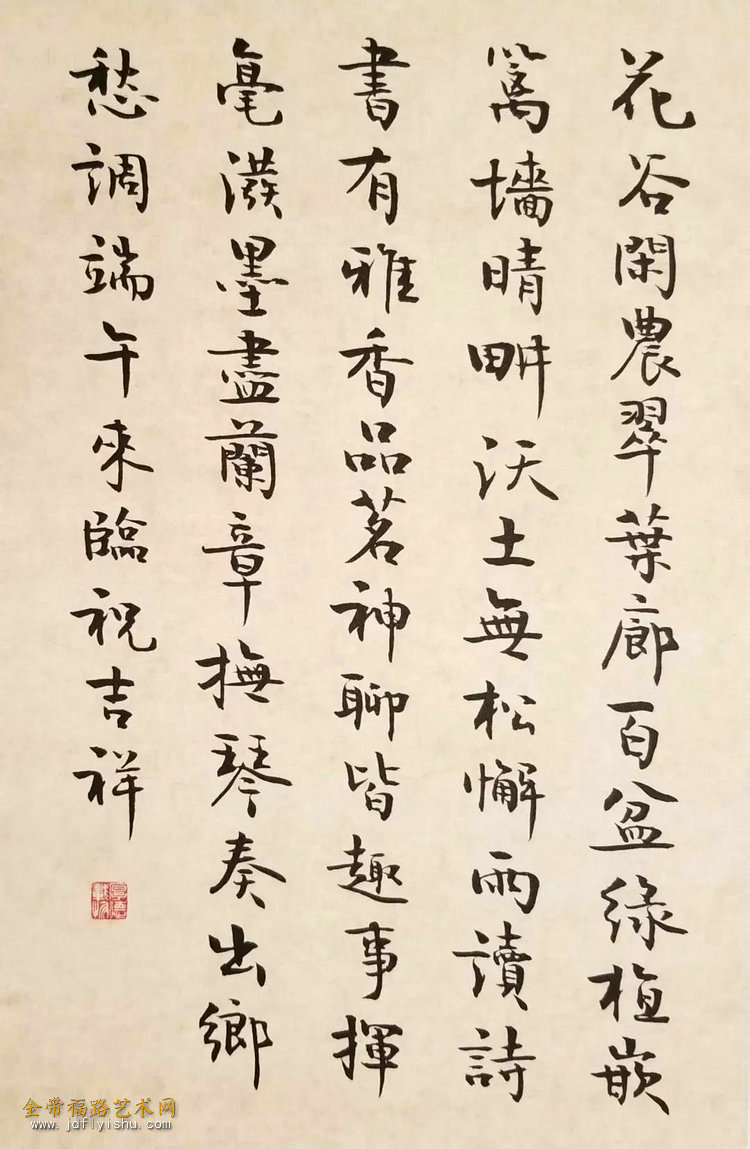 花谷閑農翠葉廊百盆綠植嵌
篱墻晴畊沃土無松懈雨讀詩
書有雅香品茗神聊皆趣事揮
毫潑墨盡蘭章撫琴奏出鄉
愁調端午來臨祝吉祥
厚德載物
金带福路艺术网
www.jdflyishu.com